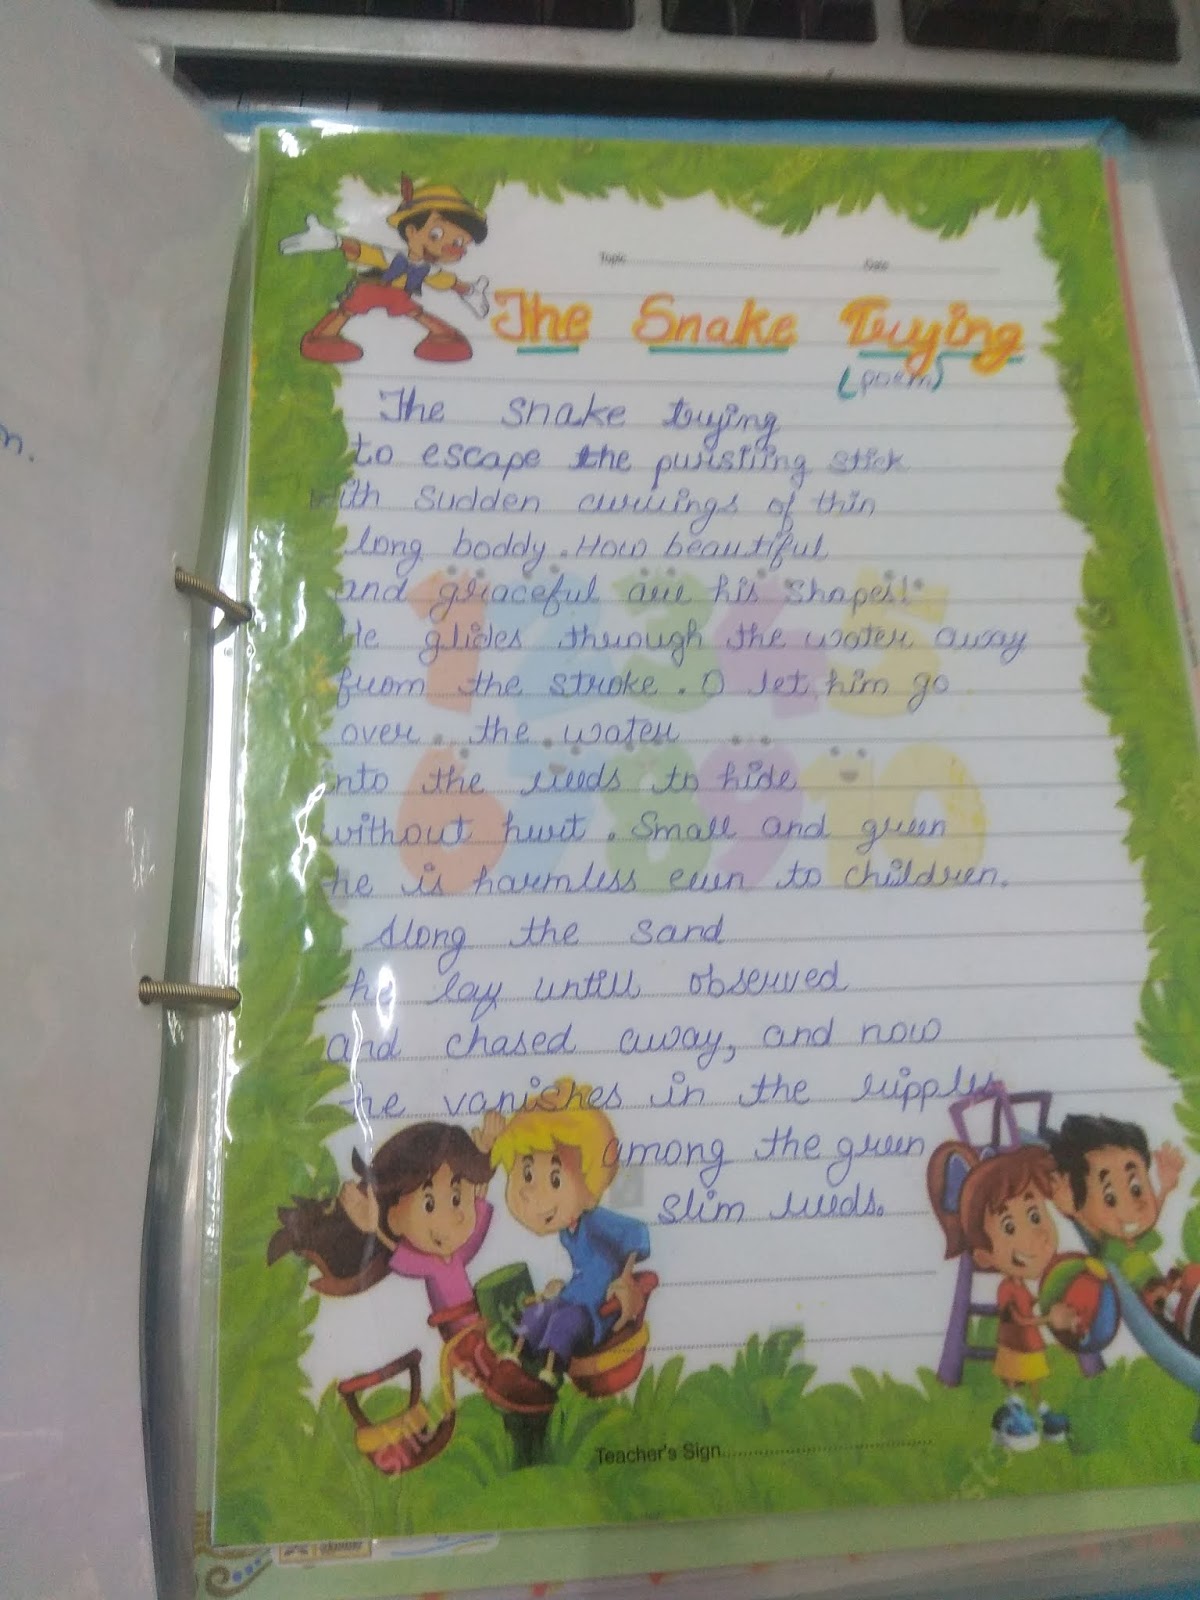 n.
Topic Date
The Snake Trying
(poem)
The snake trying
to escape the pursiiing stick
with sudden curvings of thin
long boddy. How beautiful
and graceful are his Shapes!
He glides through the water away
from the stroke. O let him go
over the water
into the reeds to hide
without hurt. Small and green
he is harmless even to children.
Along the sand
he lay untill observed
and chased away, and now
he vanishes in the ripples
among the green
slim reeds.
Teacher's Sign